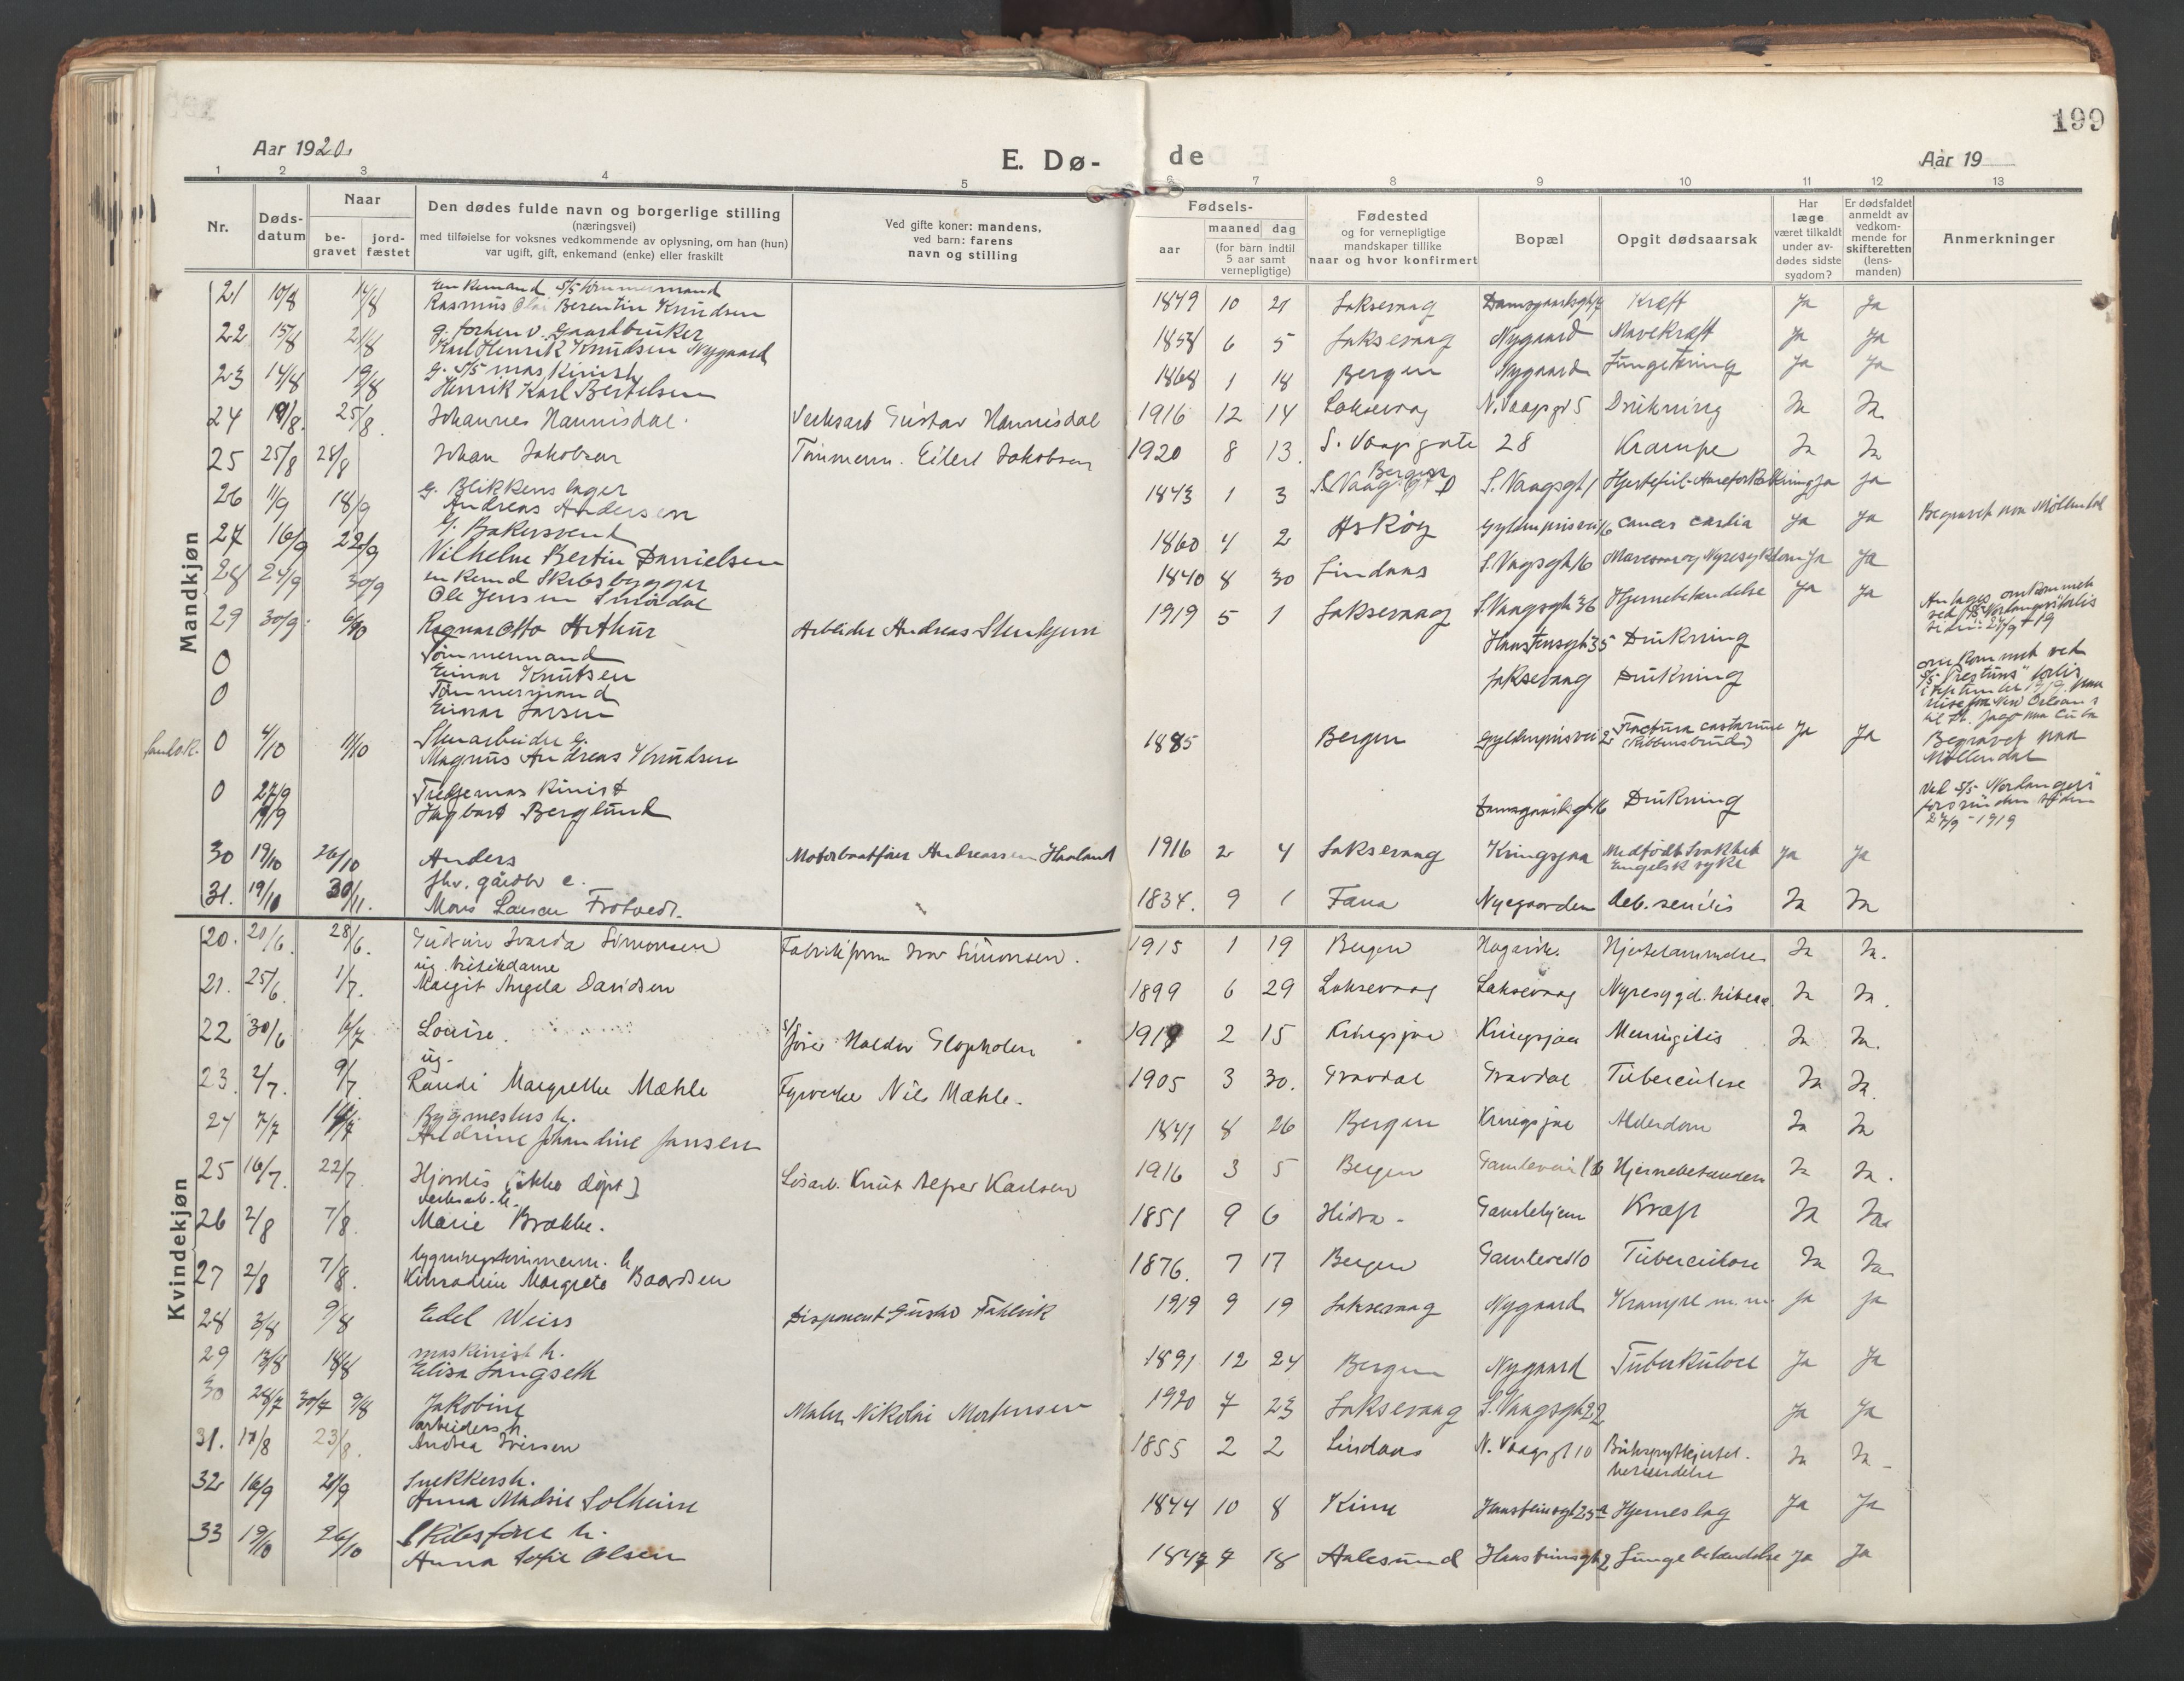 199
Aar 1920.
E. Dø-
de
Aar 19
1 2 3 4 5 6 7 8 9 10 11 12 13
Nr.
Døds-
datum
Naar
be-
gravet
jord-
fæstet
Den dødes fulde navn og borgerlige stilling
(næringsvei)
med tilføielse for voksnes vedkommende av oplysning, om han (hun)
var ugift, gift, enkemand (enke) eller fraskilt
Ved gifte koner: mandens,
ved barn: farens
navn og stilling
Fødsels-
aar
maaned dag
(for barn indtil
5 aar samt
vernepligtige)
Fødested
og for vernepligtige
mandskaper tillike
naar og hvor konfirmert
Bopæl
Opgit dødsaarsak
Har
læge
været tilkaldt
under av-
dødes sidste
sygdom?
Er dødsfaldet
anmeldt av
vedkom-
mende for
skifteretten
(lens-
manden)
Anmerkninger
Mandkjøn
21 10/8 14/8 Enkemand S/S tømmermand
Rasmus Olai Berentin Knudsen 1849 10 21 Laksevaag Kræft Ja Ja
22 15/8 21/8 g. forhenv. Gaardbruker
Karl Henrik Knudsen Nygaard 1858 6 5 Laksevaag Nygaard Mavekræft Ja Ja
23 14/8 19/8 g. S/S maskinist
Henrik Karl Bertelsen 1868 1 18 Bergen Nygaard Lungetæring Ja Ja
24 19/8. 25/8. Johannes Hannisdal. Verksarb Gustav Hannisdal 1916 12 14 Laksevaag N. Vaagsgt 5 Drukning Ja Ja.
25 25/8 28/8 Johan Jakobsen Tømmerm. Eilert Jakobsen 1920 8 13. S. Vaagsgate 28 Krampe Ja Ja
26 11/9 18/9 g. Blikkenslager
Andreas Andersen 1843 1 3 Bergen S. Vaagsgt 1 Hjertefeil-Aareforkalkning Ja Ja Begravet paa Møllendal
27 16/9 22/9 g. Bakersvend
Vilhelm Bertin Danielsen 1860 4 2 Askøy Gyldenprisvei 16 cancer cardia Ja Ja
28 24/9 30/9 enkemd Skibsbygger
Ole Jensen Smördal 1840 8 30 Lindaas S. Vaagsgt 16 Mavesaar og Nyresykdom Ja Ja
29 30/9. 6/10 Ragnar Otto Arthur Arbeider Andreas Stenkjern 1919 5 1 Laksevaag S. Vaagsgt 36 Hjernebetændelse Ja Ja
0 Tømmermand
Einar Knutsen 35 Drukning Antages omkommet
ved S/S Norlangers forlis
siden 27/9 - 19
0 Tømmermand
Einar Larsen Laksevaag Drukning omkommet ved
S/S "Prestuns" forlis
i september 1919 paa
reise fra New Orleans
til St. Jago paa Cuba
0 4/10 11/10 Stenarbeider g.
Magnus Andreas Knudsen 1885 Bergen Gyldenprisvei 2 Fractura costarum
(Ribbensbrudd) Ja Ja Begravet paa
Møllendal
0 27/9
19/9 Tredjemaskinist
Hagbart Berglund Damsgaardsgt 16 Drukning Ved S/S "Norlangers"
forsvinden siden
27/9 - 1919
30 19/10 26/10 Anders Motorbaatfører Andreassen Haaland 1916 2 4 Laksevaag Kringsjaa Medfødt Svakhet
Engelsk syke Ja Ja
31. 19/10 30/11. fhv. gårdbr e.
Mons Larsen Trotvedt. 1834. 9 1 Fana Nygaarden Deb. senilis Ja Ja
Kvindekjøn
20. 21/6. 28/6. Gudrun Ivarda Simonsen Fabrikform Ivar Simonsen. 1915 1 19 Bergen Hagavik. Hjertelammelse Ja Ja.
21. 25/6 1/7. ug. butikdame
Margit Angela Davidsen 1899 6 29 Laksevaag Laksevaag Nyresygd. Ja Ja.
22 30/6 4/7 Louise. 2 15 Kringsjaa Kringsjaa Meningitis Ja Ja.
23. 2/7. 9/7 ug.
Randi Margrethe Mæhle Fyrverker Nils Mæhle. 1905 3 30. Gravdal Gravdal Tuberculose Ja Ja.
24 7/7 Bygmesters h.
Andrine Johandine Jansen 1841 8 26 Bergen Kringsjaa Alderdom Ja Ja
25 16/7. 22/7. Hjørdis (ikke døpt) Løsarb. Knut Alfred Karlsen 1916 3 5 Bergen Hjernebetændelse Ja Ja.
26 2/8 7/8. verksarb. h.
Marie Brække. 1851 9 6 Hidra - Gamlehjem Kræft Ja Ja
27 2/8 7/8. bygningstømmerm. h
Konradine Margrete Baardsen 1876. 7 17 Bergen Tuberculose Ja Ja
28 3/8 9/8 Edel Weiss Disponent 1919 9 19 Laksevaag Nygaard Krampe m. m. Ja Ja
29 13/8 18/8 maskinist h.
Elisa Langseth 1891 12 24 Bergen Nygaard Tuberkulose Ja Ja
30 28/7 30/7 9/8 Jakobine Maler Nikolai Mortensen 1920 7 23 Laksevaag S. Vaagsgt 22 Ja Ja
31. 17/8 23/8. arbeiders h.
Andrea Iversen 1855 2 2 Lindaas N. Vaagsgt 10 Bukspytkjertel-
betændelse Ja Ja -
32 16/9 21/9 Snekkersh.
Anna Madsie Solheim 1844 10 8 Kinn Haasteinsgt 25 a Hjerneslag Ja Ja
33 19/10 26/10 Skibsfører h.
Anna Sofie Olsen 1847 7 18 Aalesund Haasteinsgt 2 Lungebetændelse Ja Ja